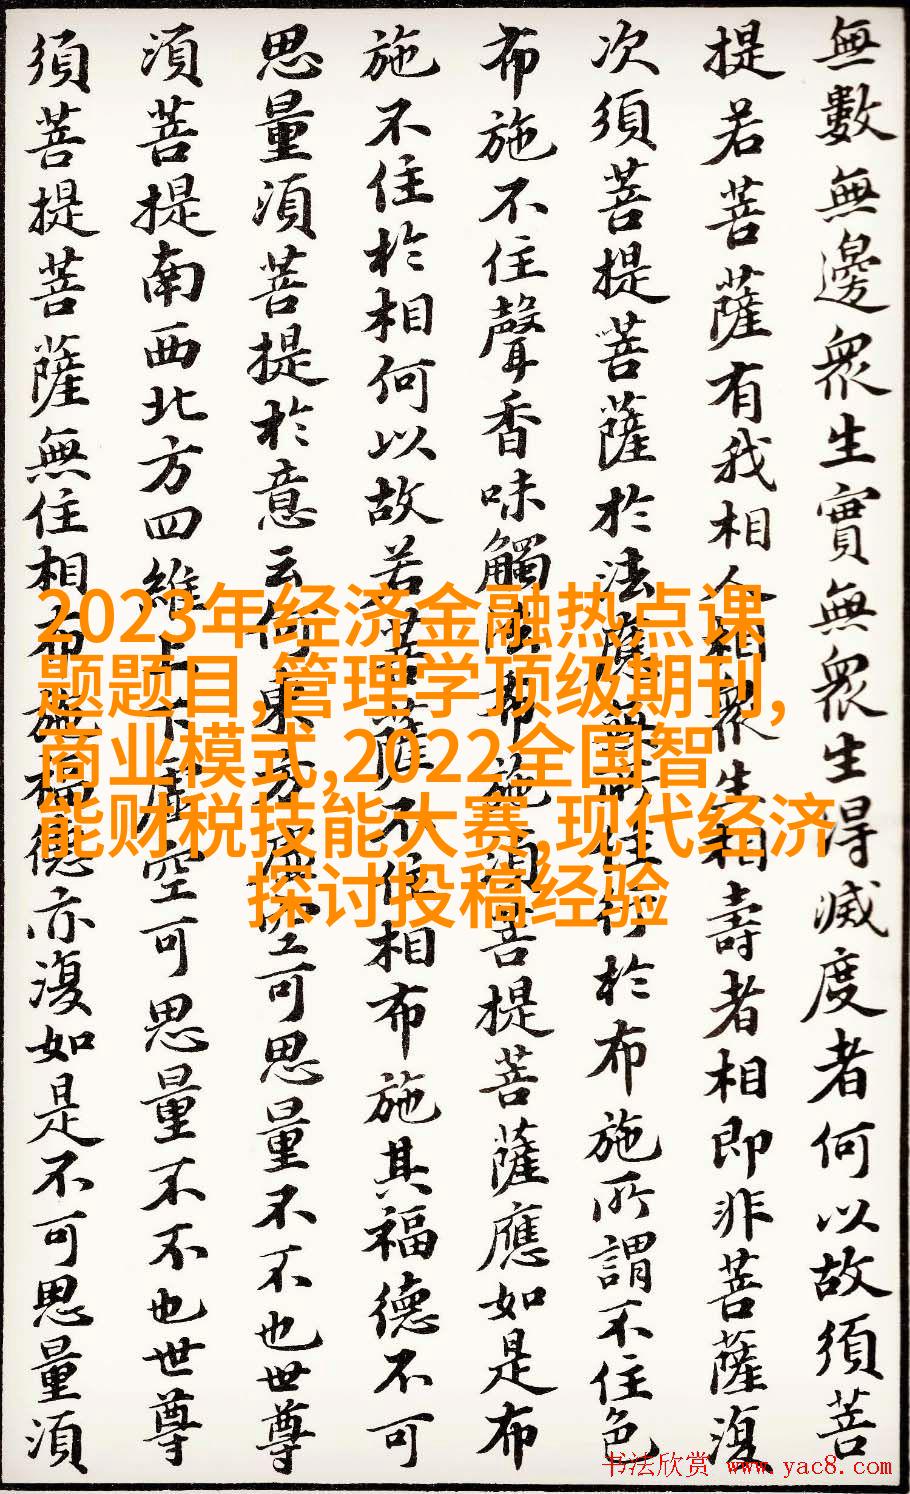 無數無邊衆生實無衆生得滅度者何以故須菩
提若菩薩有我相人相衆生相壽者相即非菩薩復
次須菩提菩薩於法應無所住行於布施所謂不住色
布施不住聲香味觸法布施須菩提菩薩應如是布
施不住於相何以故若菩薩不住相布施其福德不可
思量須菩提於意云何東方虛空可思量不不也世尊
須菩提南西北方四維上下虛空可思量不不也世尊
須菩提菩薩無住相布施福德亦復如是不可思量須
2023年经济金融热点课
题题目,管理学顶级期刊,
商业模式,2022全国智
能财税技能大赛,现代经济
探讨投稿经验
书法欣赏 www.yac8.com